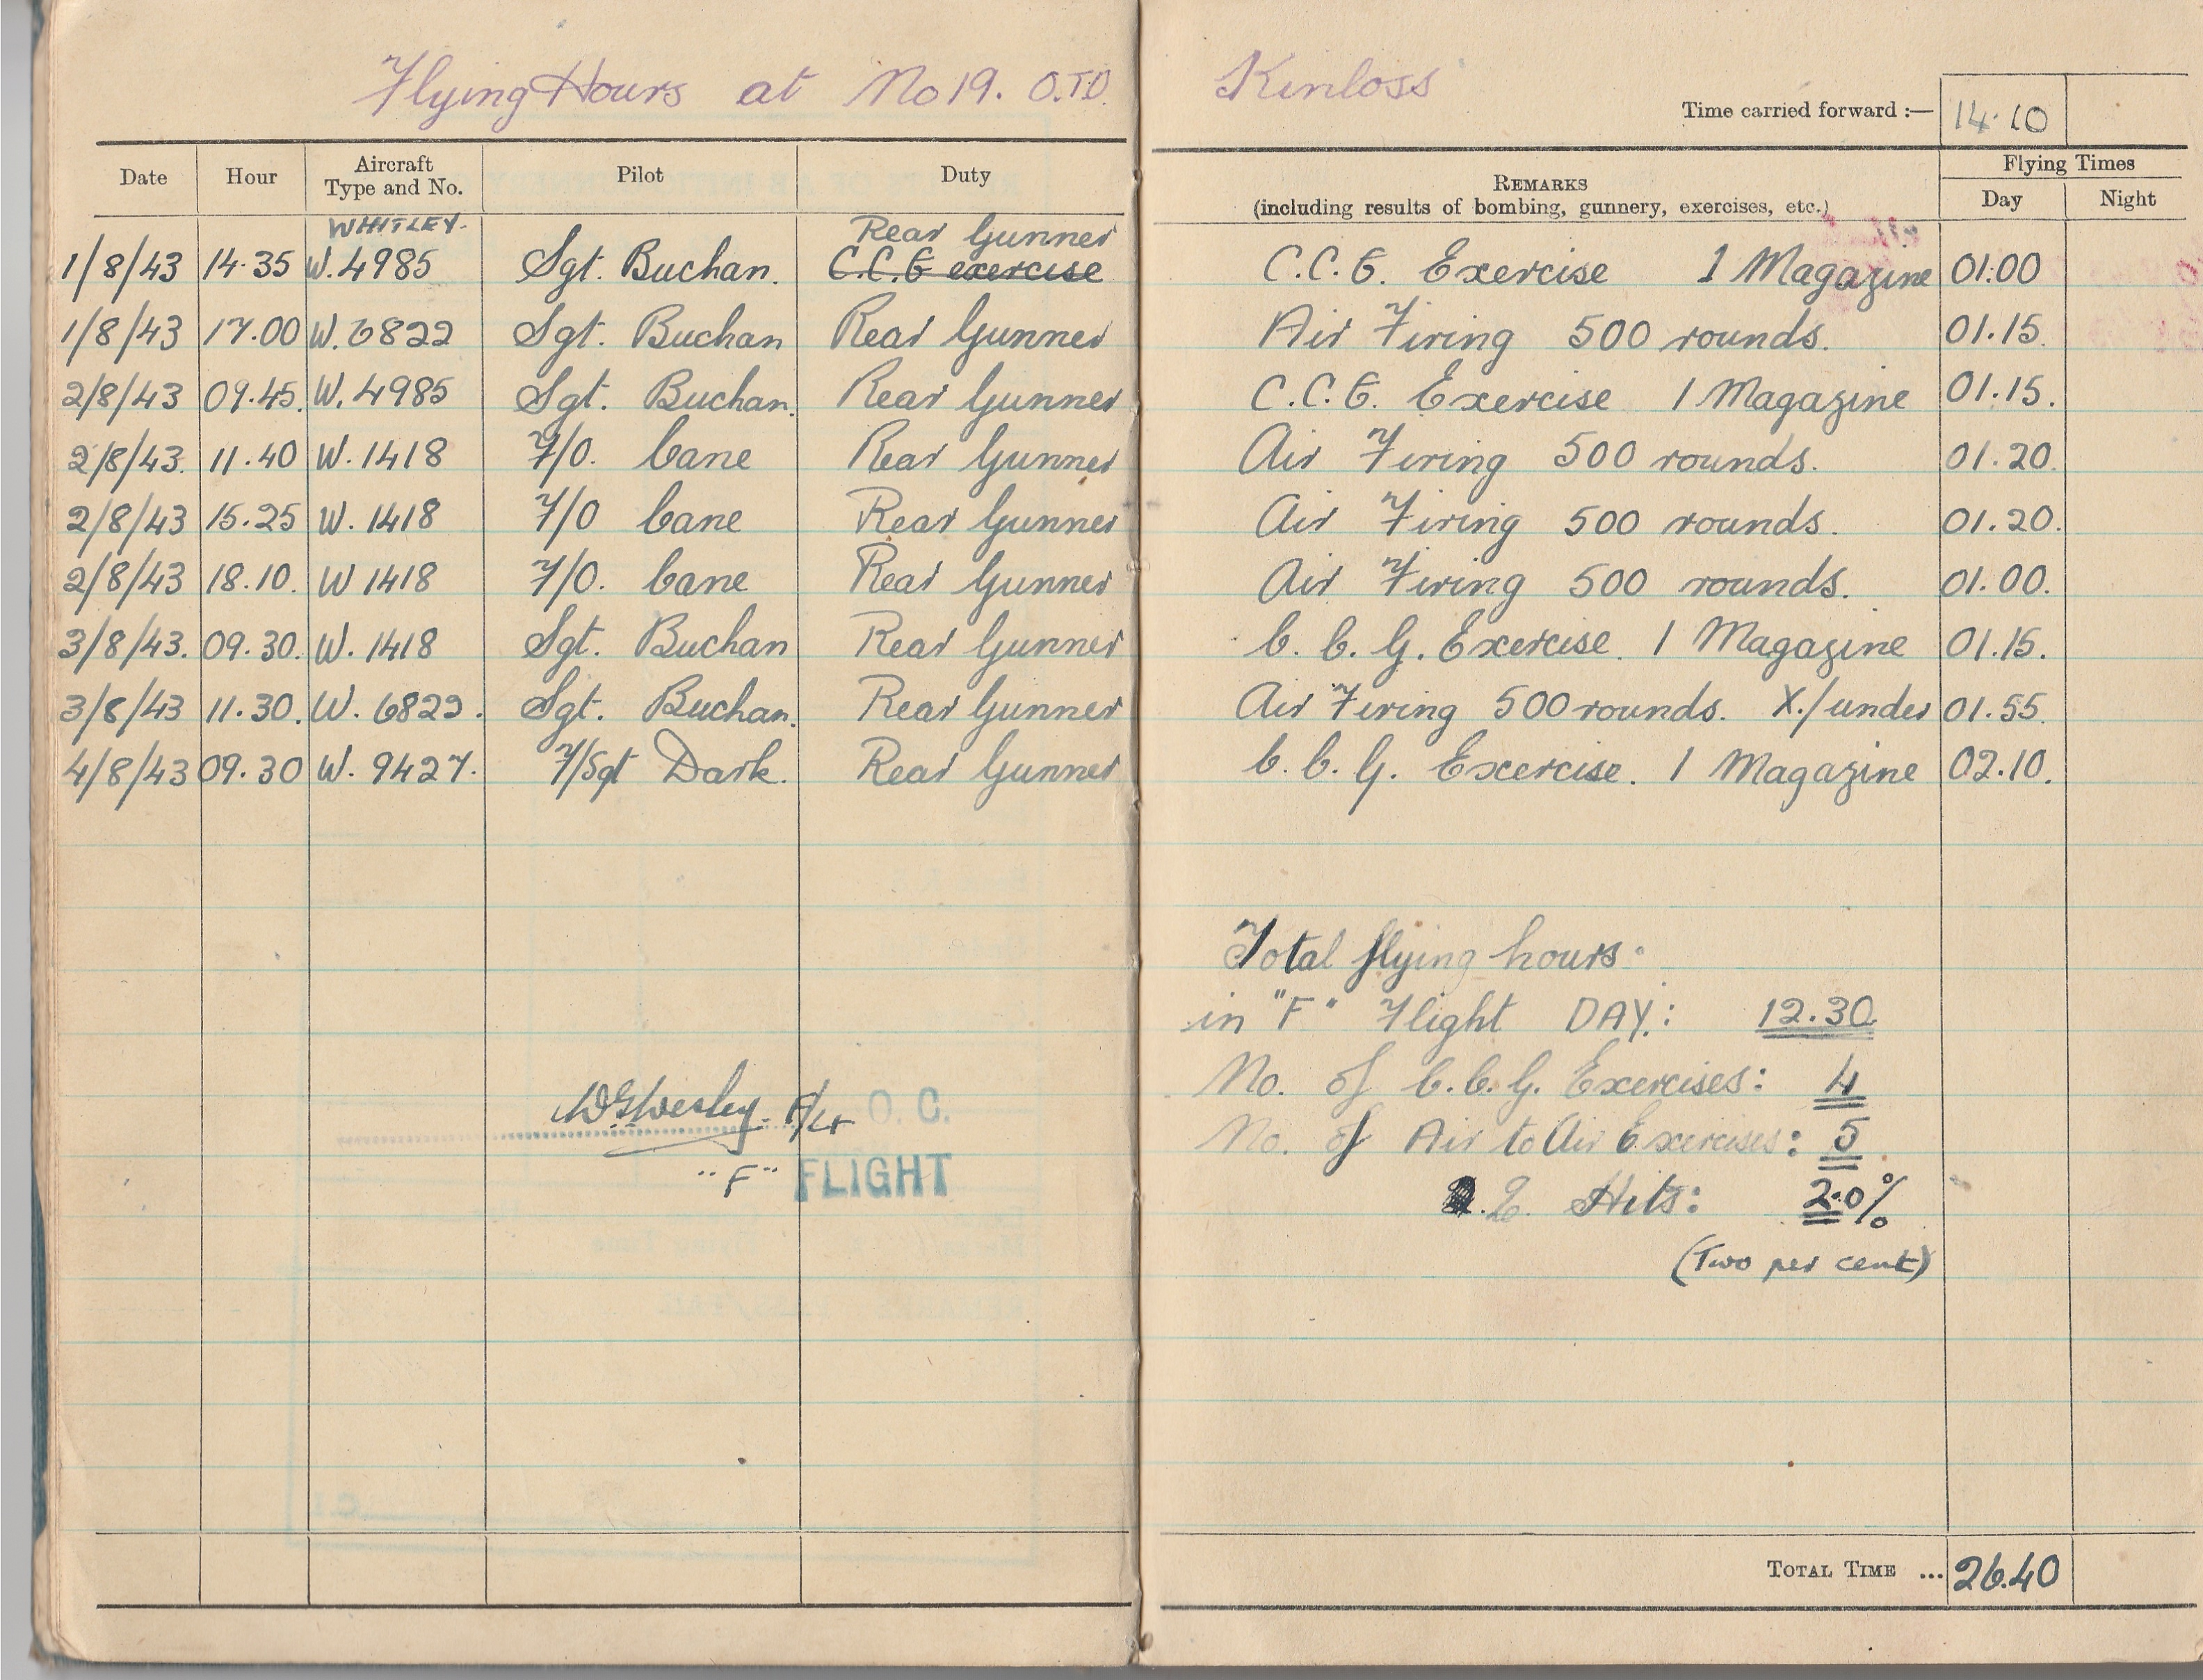 Flying Hours at No 19. O.T.U. Kinloss
Time carried forward :— 14.10
Date Hour Aircraft Type and No. Pilot Duty REMARKS (including results of bombing, gunnery, exercises, etc.) Flying Times Day Night
WHITLEY. Rear Gunner
1/8/43 14.35 W.4985 Sgt. Buchan. C.C.G exercise C.C.G. Exercise 1 Magazine 01.00
1/8/43 17.00 W.6822 Sgt. Buchan Rear Gunner Air Firing 500 rounds. 01.15.
2/8/43 09.45. W.4985 Sgt. Buchan. Rear Gunner C.C.G. Exercise 1 Magazine 01.15.
2/8/43. 11.40 W.1418 F/O. Cane Rear Gunner Air Firing 500 rounds. 01.20.
2/8/43 15.25 W.1418 F/O Cane Rear Gunner Air Firing 500 rounds. 01.20.
2/8/43 18.10. W 1418 F/O. Cane Rear Gunner Air Firing 500 rounds. 01.00.
3/8/43. 09.30. W.1418 Sgt. Buchan Rear Gunner C.C.G. Exercise. 1 Magazine 01.15.
3/8/43 11.30. W.6822. Sgt. Buchan. Rear Gunner Air Firing 500 rounds. X./under 01.55.
4/8/43 09.30 W. 9427. F/Sgt Dark. Rear Gunner C.C.G. Excercise. 1 Magazine 02.10.
Total flying hours.
in "F" Flight DAY: 12.30
No. of C.C.G. Exercises: 4
No. of Air to Air Exercises: 5
Hits: 2.0%
(Two per cent)
F/Lt O. C.
"F" FLIGHT
TOTAL TIME ... 26.40